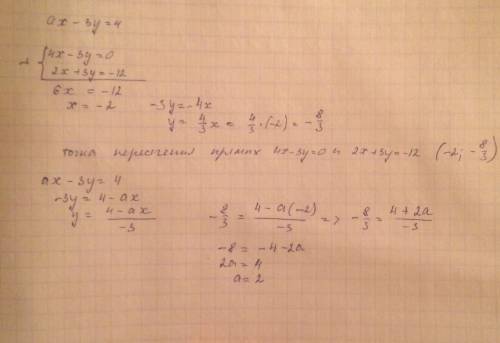 ax - 3y = 4
+ { 4x - 3y = 0
2x + 3y = -12
6x = -12
x = -2   -3y = -4x
y = 4/3 x = 4/3 · (-2) = -8/3
точка пересечения прямых 4x-3y=0 и 2x+3y=-12 (-2; -8/3)
ax - 3y = 4
-3y = 4 - ax
y = (4 - ax)/-3   -8/3 = (4 - a(-2))/-3 => -8/3 = (4 + 2a)/-3
-8 = -4 - 2a
2a = 4
a = 2